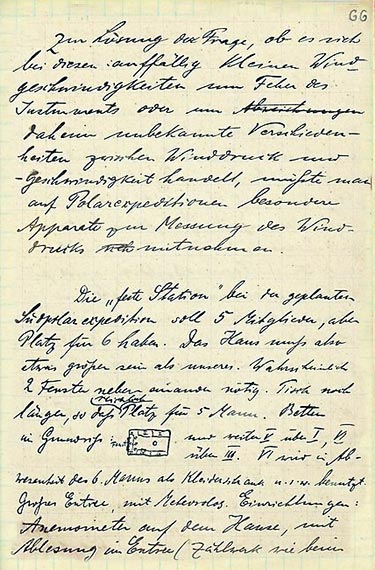 GG
Zur Lösung der Frage, ob es sich
bei diesen auffällig kleinen Wind-
geschwindigkeiten um Fehler des
Instruments oder um Abweichungen
dahin unbekannte Verschieden-
heiten zwischen Winddruck und
-Geschwindigkeit handelt, müßte man
auf Polarexpeditionen besondere
Apparate zur Messung des Wind-
drucks mitnehmen.
Die „feste Station" bei der geplanten
Südpolarexpedition soll 5 Mitglieder, aber
Platz für 6 haben. Das Haus muß also
etwas größer sein als unseres. Wahrscheinlich
2 Fenster neben einander nötig. Tisch noch
länger, so daß reichlich Platz für 5 Mann. Betten
im Grundriß: und weiter V über I, VI
über III. VI wird in Ab-
wesenheit des 6. Manns als Kleiderschrank u.s.w. benutzt.
Großes Entree, mit Meteorolog. Einrichtungen:
Anemometer auf dem Hause, mit
Ablesung im Entree (Zählwerk wie beim